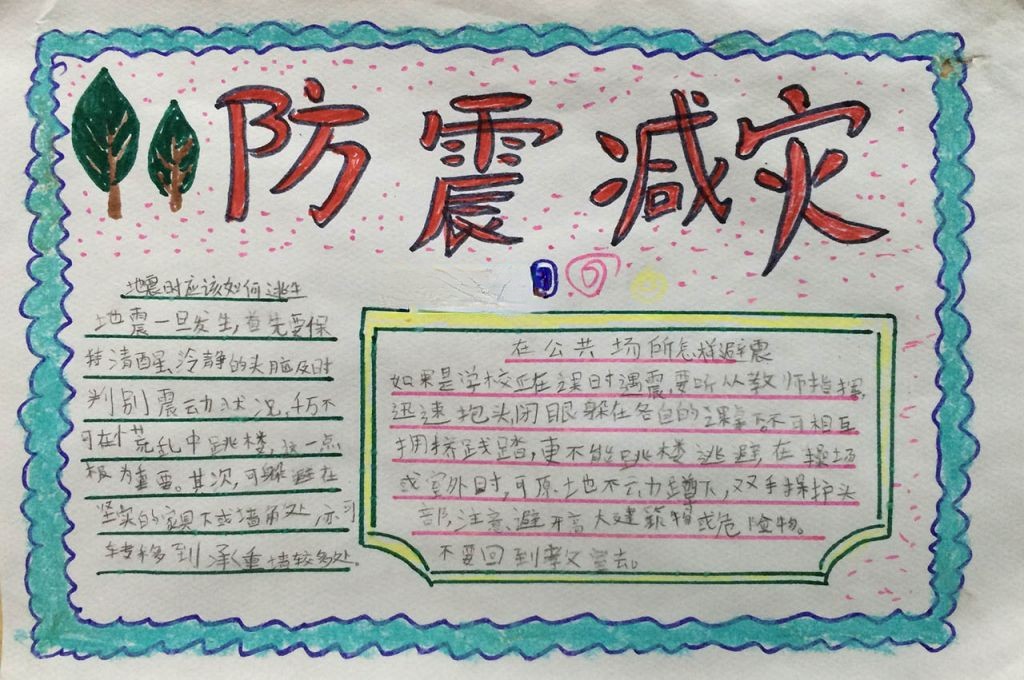 防震减灾
地震时应该如何逃生
地震一旦发生,首先要保
持清醒、冷静的头脑及时
判别震动状况,千万不
可在慌乱中跳楼,这一点
极为重要。其次,可躲避在
坚实的家具下或墙角处,亦可
转移到承重墙较多处.
在公共场所怎样避震
如果是学校正在上课时遇震,要听从教师指挥,
迅速抱头闭眼躲在各自的课桌下不可相互
拥挤践踏,更不能跳楼逃避,在操场
或室外时,可原土也不云力蹲下,双手保护头
部,注意避开高大建筑物或危险物。
不要回到教室去。